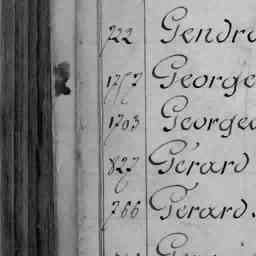 722 Gendro
1757 George
1703 George
827 Gérard
766 Gérard.